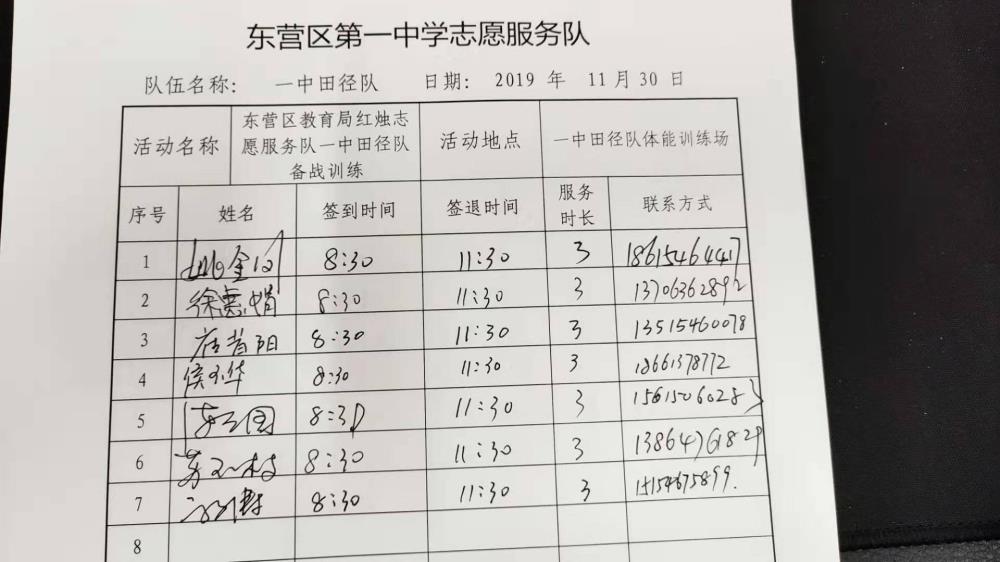 东营区第一中学志愿服务队
队伍名称: 一中田径队 日期: 2019 年 11月30 日
活动名称 东营区教育局红烛志愿服务队一中田径队备战训练 活动地点 一中田径队体能训练场
序号 姓名 签到时间 签退时间 服务时长 联系方式
1 8:30 11:30 3 18615464417
2 徐惠娟 8:30 11:30 3 13706362892
3 8:30 11:30 3 13515460078
4 8:30 11:30 3 18661378772
5 8:30 11:30 3 15615060283
6 8:30 11:30 3 13864761829
7 8:30 11:30 3 15154675899.
8